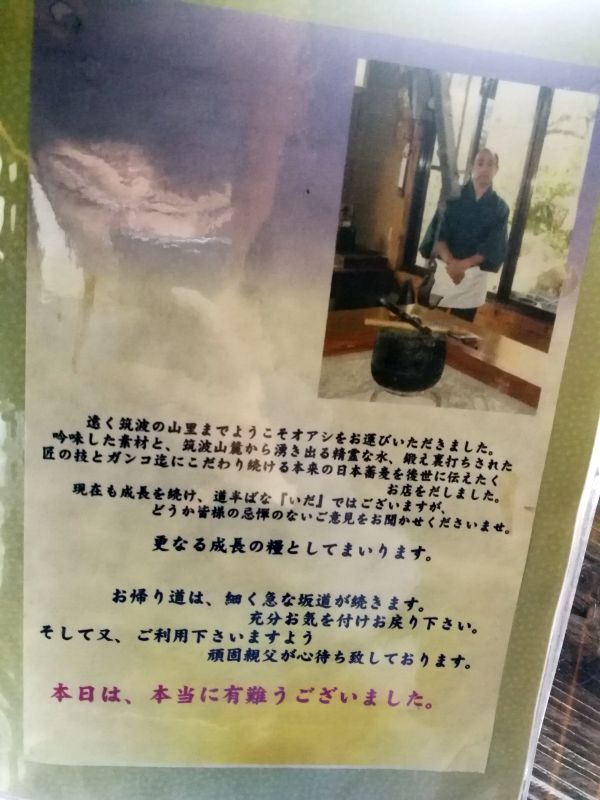 遠く筑波の山里までようこそオアシをお運びいただきました。
吟味した素材と、筑波山麓から湧き出る精霊な水、鍛え裏打ちされた
匠の技とガンコ迄にこだわり続ける本来の日本蕎麦を後世に伝えたく
お店をだしました。
現在も成長を続け、道半ばな『いだ』ではございますが、
どうか皆様の忌憚のないご意見をお聞かせくださいませ。
更なる成長の糧としてまいります。
お帰り道は、細く急な坂道が続きます。
充分お気を付けお戻り下さい。
そして又、ご利用下さいますよう
頑固親父が心待ち致しております。
本日は、本当に有難うございました。